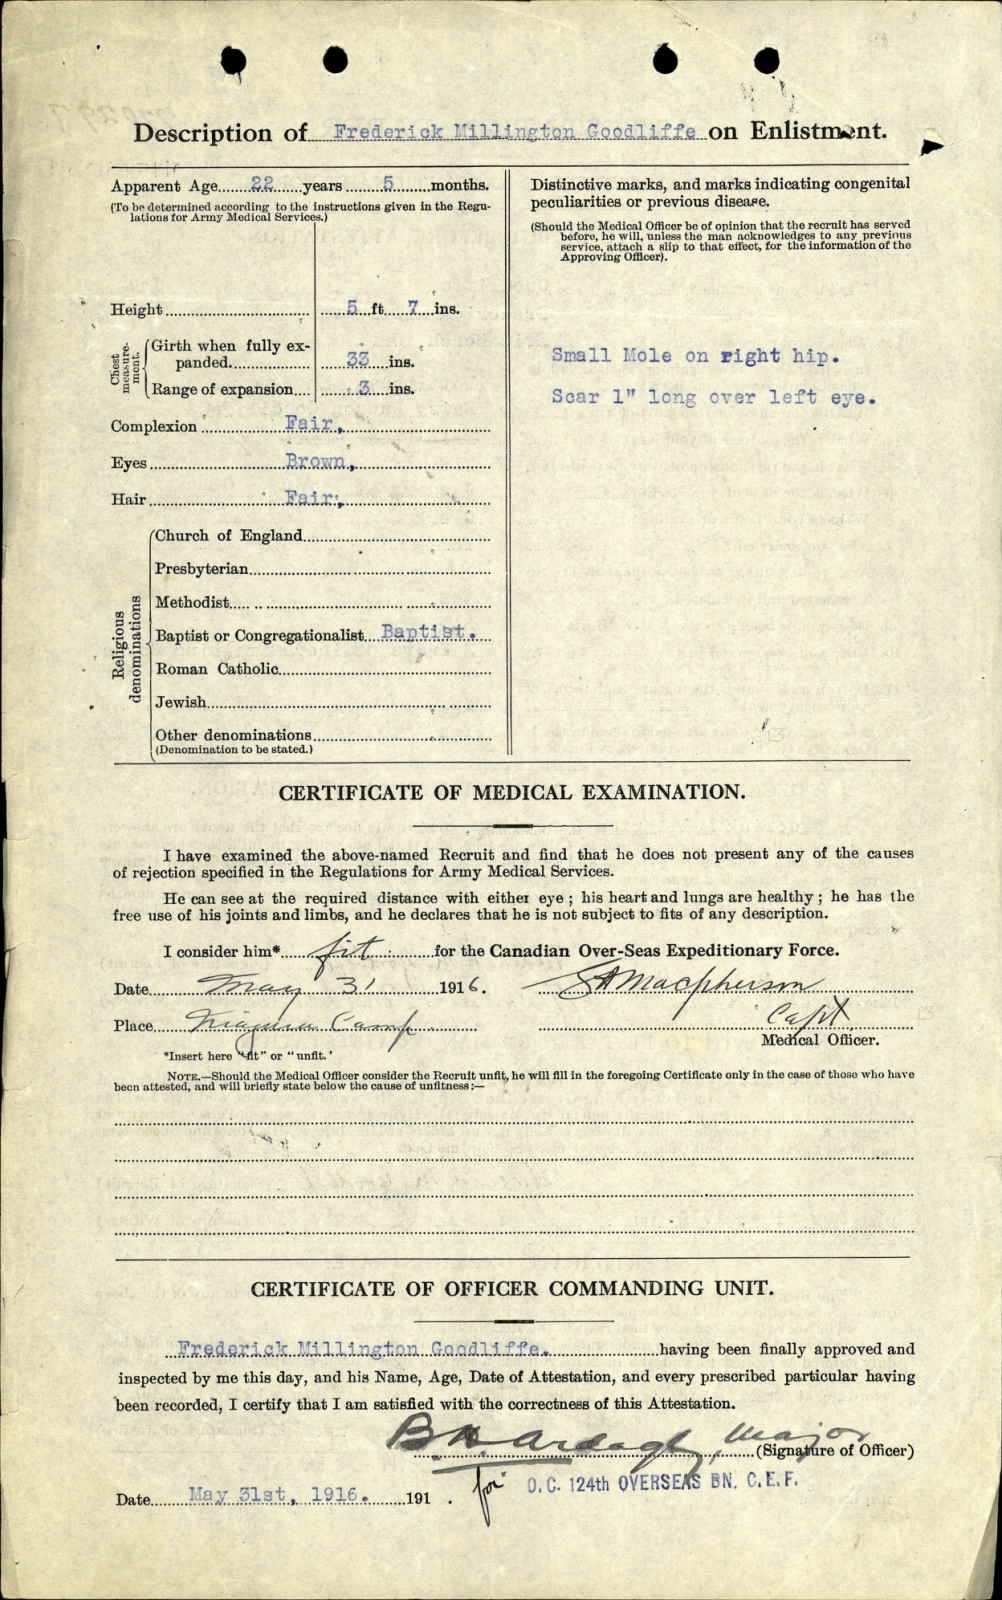 Description of Frederick Millington Goodliffe on Enlistment.
Apparent Age 22 years 5 months.
(To be determined according to the instructions given in the Regu-
lations for Army Medical Services.)
Height 5 ft 7 ins.
Chest measure-ment.
Girth when fully ex-
panded 33 ins.
Range of expansion 3 ins.
Complexion Fair,
Eyes Brown,
Hair Fair,
Religious denominations
Church of England
Presbyterian
Methodist
Baptist or Congregationalist Baptist.
Roman Catholic
Jewish
Other denominations
(Denomination to be stated.)
Distinctive marks, and marks indicating congenital
peculiarities or previous disease.
(Should the Medical Officer be of opinion that the recruit has served
before, he will, unless the man acknowledges to any previous
service, attach a slip to that effect, for the information of the
Approving Officer).
Small Mole on right hip.
Scar 1" long over left eye.
CERTIFICATE OF MEDICAL EXAMINATION.
I have examined the above-named Recruit and find that he does not present any of the causes
of rejection specified in the Regulations for Army Medical Services.
He can see at the required distance with either eye; his heart and lungs are healthy; he has the
free use of his joints and limbs, and he declares that he is not subject to fits of any description.
I consider him* fit for the Canadian Over-Seas Expeditionary Force.
Date May 31 1916. Macpherson
Place Niagara Camp Capt.
Medical Officer.
*Insert here "fit" or "unfit."
NOTE.—Should the Medical Officer consider the Recruit unfit, he will fill in the foregoing Certificate only in the case of those who have
been attested, and will briefly state below the cause of unfitness:—
CERTIFICATE OF OFFICER COMMANDING UNIT.
Frederick Millington Goodliffe. having been finally approved and
inspected by me this day, and his Name, Age, Date of Attestation, and every prescribed particular having
been recorded, I certify that I am satisfied with the correctness of this Attestation.
B.H. Ardagh, Major (Signature of Officer)
for O.C. 124th OVERSEAS BN. C.E.F.
Date May 31st, 1916. 191 .